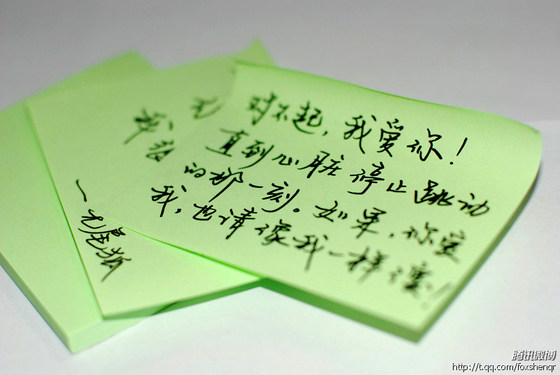 对不起,我爱你!
直到心脏停止跳动
的那一刻。如果,你爱
我,也请像我一样!
无
一无狐
腾讯微博
http://t.qq.com/foxshengr